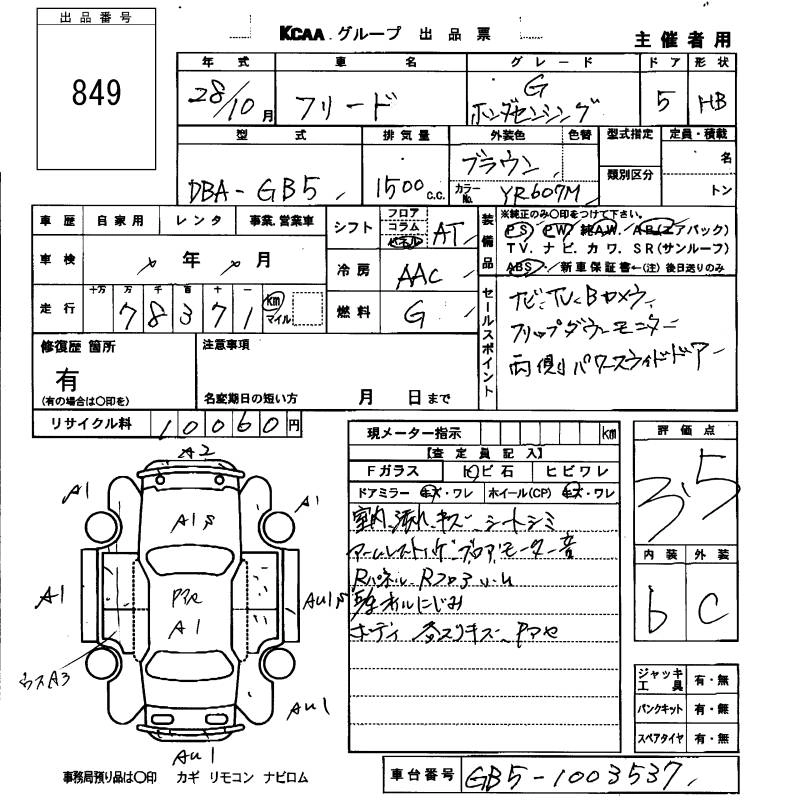 出品番号
849
KCAA グループ 出品票
主催者用
年式 車名 グレード ドア 形状
28/10月 フリード G ホンダセンシング 5 HB
型式 排気量 外装色 色替 型式指定 定員・積載
DBA-GB5 1500c.c. ブラウン 類別区分 名
カラーNo. YR607M トン
車歴 自家用 レンタ 事業.営業車
シフト フロア コラム パネル AT
装備品 ※純正のみ○印をつけて下さい。
PS PW 純AW. AB(エアバック)
TV. ナビ. カワ. SR(サンルーフ)
ABS 新車保証書←(注)後日送りのみ
車検 年 月
冷房 AAC
走行 十万 万 千 百 十 一
78371 km マイル
燃料 G
セールスポイント
ナビ.TV.Bカメラ
フリップダウンモニター
両側パワースライドドアー
修復歴 箇所
有
(有の場合は○印を)
注意事項
名変期日の短い方 月 日まで
リサイクル料 10060円
現メーター指示 km
【査定員記入】
Fガラス トビ石 ヒビワレ
ドアミラー キズ・ワレ ホイール(CP) キズ・ワレ
室内 汚れ キズ シートシミ
モーター音
Rパネル Rフロア
オイルにじみ
ボディ キズ
評価点
3.5
内装 外装
b C
ジャッキ工具 有・無
パンクキット 有・無
スペアタイヤ 有・無
A2
A1
A1
A1
A1
A1
AU1
ウスA3
AU1
AU1
事務局預り品は○印 カギ リモコン ナビロム
車台番号 GB5-1003537